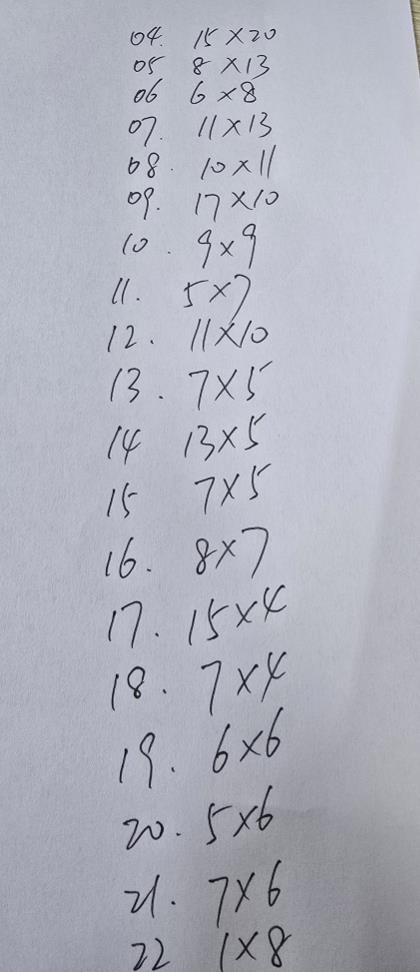 04. 15×20
05 8×13
06 6×8
07. 11×13
08. 10×11
09. 17×10
10. 9×9
11. 5×7
12. 11×10
13. 7×5
14 13×5
15 7×5
16. 8×7
17. 15×4
18. 7×4
19. 6×6
20. 5×6
21. 7×6
22 1×8